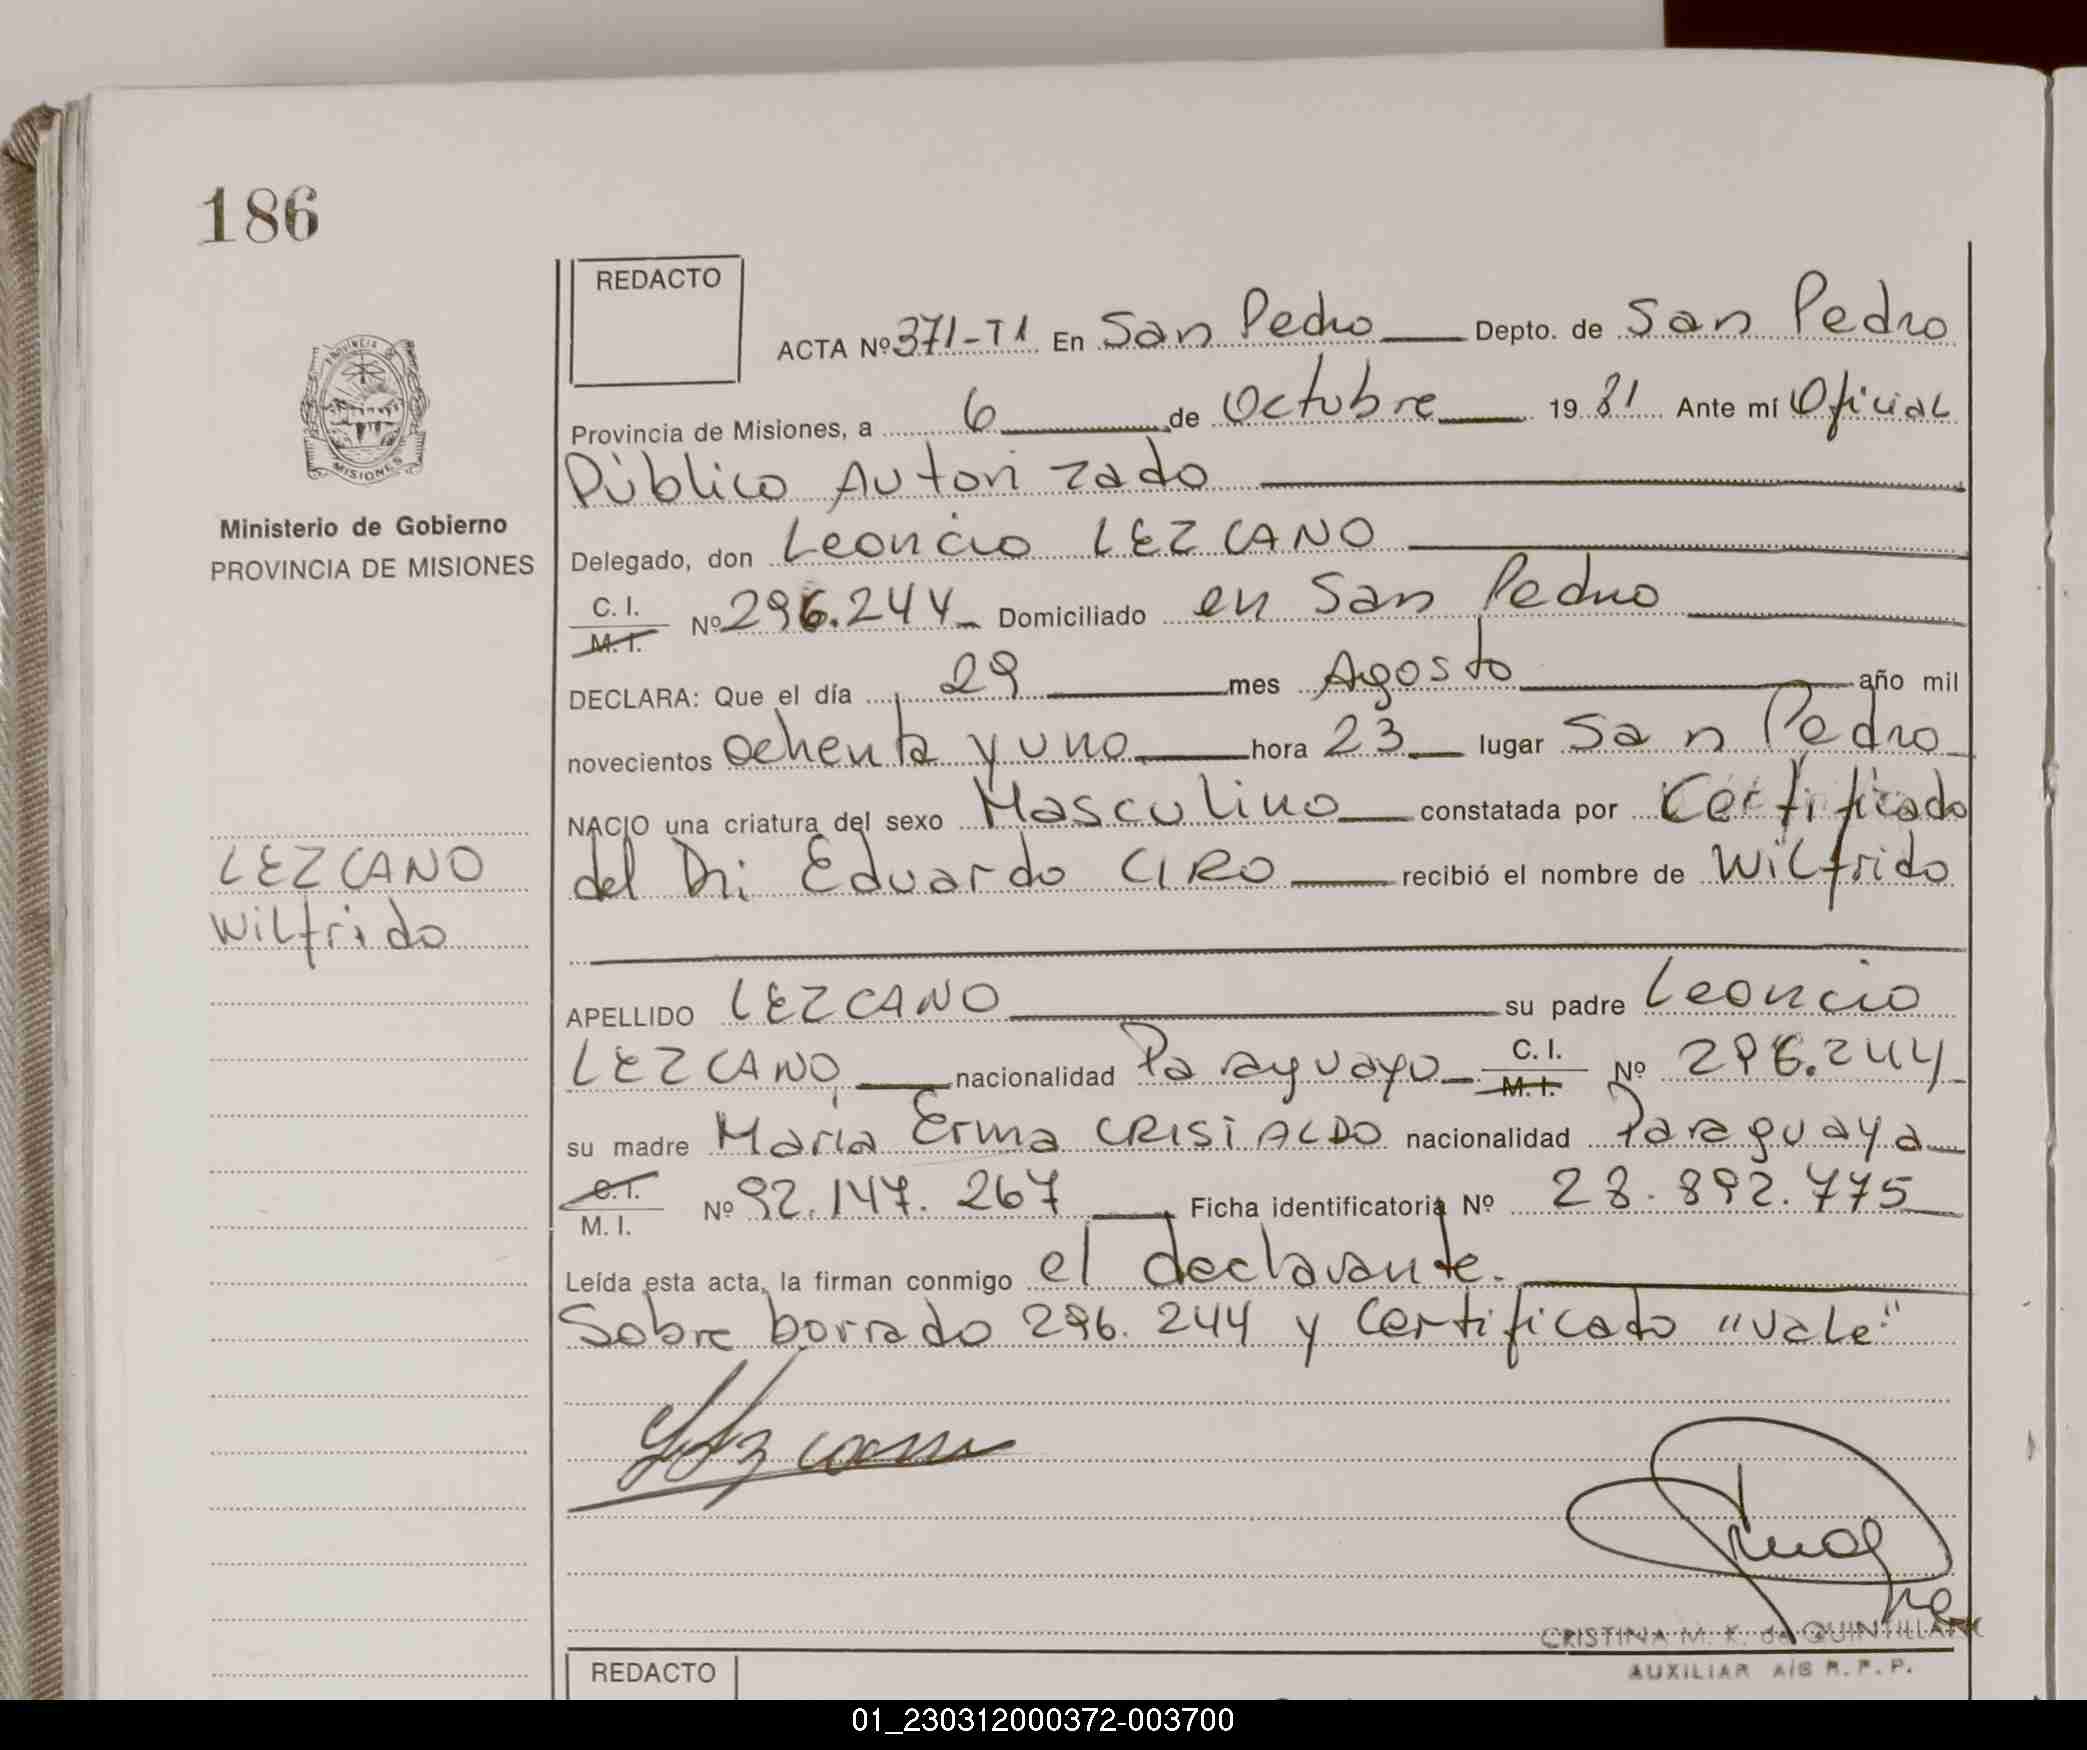 186
REDACTO
ACTA Nº 371-T1 En San Pedro Depto. de San Pedro
Provincia de Misiones, a 6 de Octubre 19 81 Ante mí Oficial
Público Autorizado
Delegado, don Leoncio LEZCANO
C. I.
M. I. Nº 296.244 Domiciliado en San Pedro
DECLARA: Que el día 29 mes Agosto año mil
novecientos ochenta y uno hora 23 lugar San Pedro
NACIO una criatura del sexo Masculino constatada por Certificado
del Dr: Eduardo CIRO recibió el nombre de Wilfrido
APELLIDO LEZCANO su padre Leoncio
LEZCANO nacionalidad Paraguayo C. I. M. I. Nº 296.244
su madre María Erma CRISTALDO nacionalidad Paraguaya
C. I.
M. I. Nº 92.147.267 Ficha identificatoria Nº 28.892.775
Leída esta acta, la firman conmigo el declarante.
Sobre borrado 296.244 y Certificado "vale"
Lezcano
CRISTINA M. K. de QUINTILLAN
AUXILIAR A/S R. P. P.
REDACTO
PROVINCIA DE
MISIONES
Ministerio de Gobierno
PROVINCIA DE MISIONES
LEZCANO
Wilfrido
01_230312000372-003700